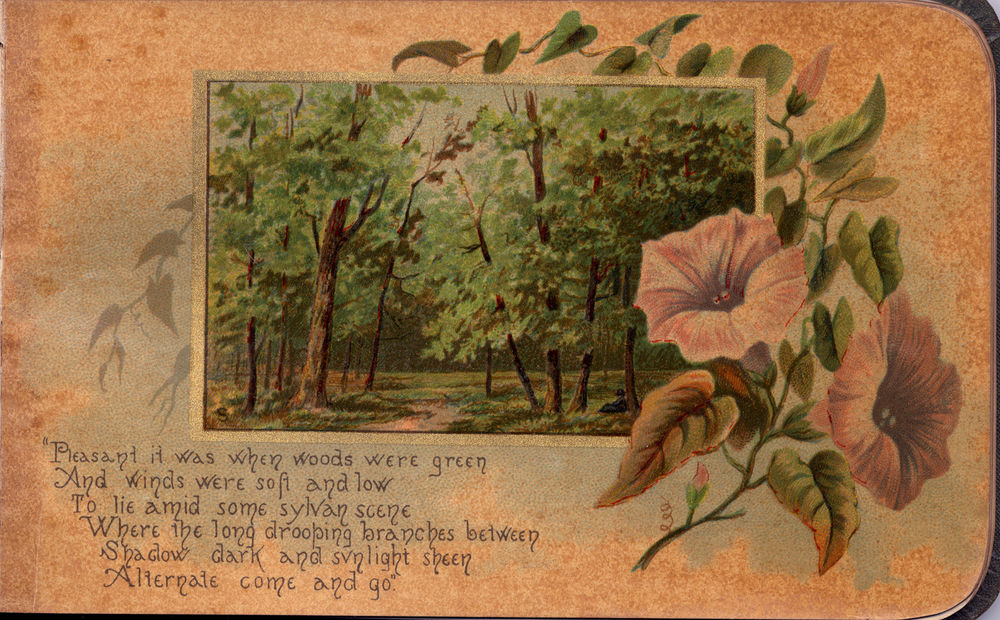 "Pleasant it was when woods were green
And winds were soft and low
To lie amid some sylvan scene
Where the long drooping branches between
Shadow dark and svnlight sheen
Alternate come and go".